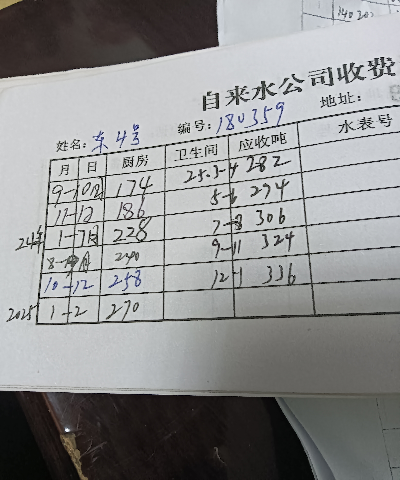 140 20
自来水公司收费
姓名: 东4号 编号: 180359 地址:
月 日 厨房 卫生间 应收吨 水表号
9-10月 174 25.3-4 282
11-12 186 5-6 294
24年 1-7月 228 7-8 306
8-9月 240 9-11 324
10-12 258 12-1 336
2025 1-2 270